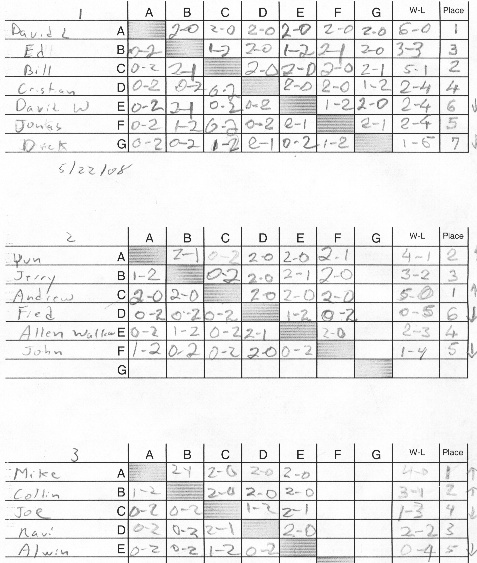 1 A B C D E F G W-L Place
David L A 2-0 2-0 2-0 2-0 2-0 2-0 6-0 1
Ed B 0-2 1-2 2-0 1-2 2-1 2-0 3-3 3
Bill C 0-2 2-1 2-0 2-0 2-0 2-1 5-1 2
Cristian D 0-2 0-2 0-2 2-0 2-0 1-2 2-4 4
David W E 0-2 2-1 0-2 0-2 1-2 2-0 2-4 6 ↓
Jonas F 0-2 1-2 0-2 0-2 2-1 2-1 2-4 5
Dick G 0-2 0-2 1-2 2-1 0-2 1-2 1-5 7 ↓
5/22/08
2 A B C D E F G W-L Place
Yun A 2-1 0-2 2-0 2-0 2-1 4-1 2
Jerry B 1-2 0-2 2-0 2-1 2-0 3-2 3
Andrew C 2-0 2-0 2-0 2-0 2-0 5-0 1 ↑
Fred D 0-2 0-2 0-2 1-2 0-2 0-5 6 ↓
Allen Walker E 0-2 1-2 0-2 2-1 2-0 2-3 4
John F 1-2 0-2 0-2 2-0 0-2 1-4 5 ↓
G
3 A B C D E F G W-L Place
Mike A 2-1 2-0 2-0 2-0 4-0 1 ↑
Collin B 1-2 2-0 2-0 2-0 3-1 2 ↑
Joe C 0-2 0-2 1-2 2-1 1-3 4 ↓
Navi D 0-2 0-2 2-1 2-0 2-2 3
Alwin E 0-2 0-2 1-2 0-2 0-4 5 ↓